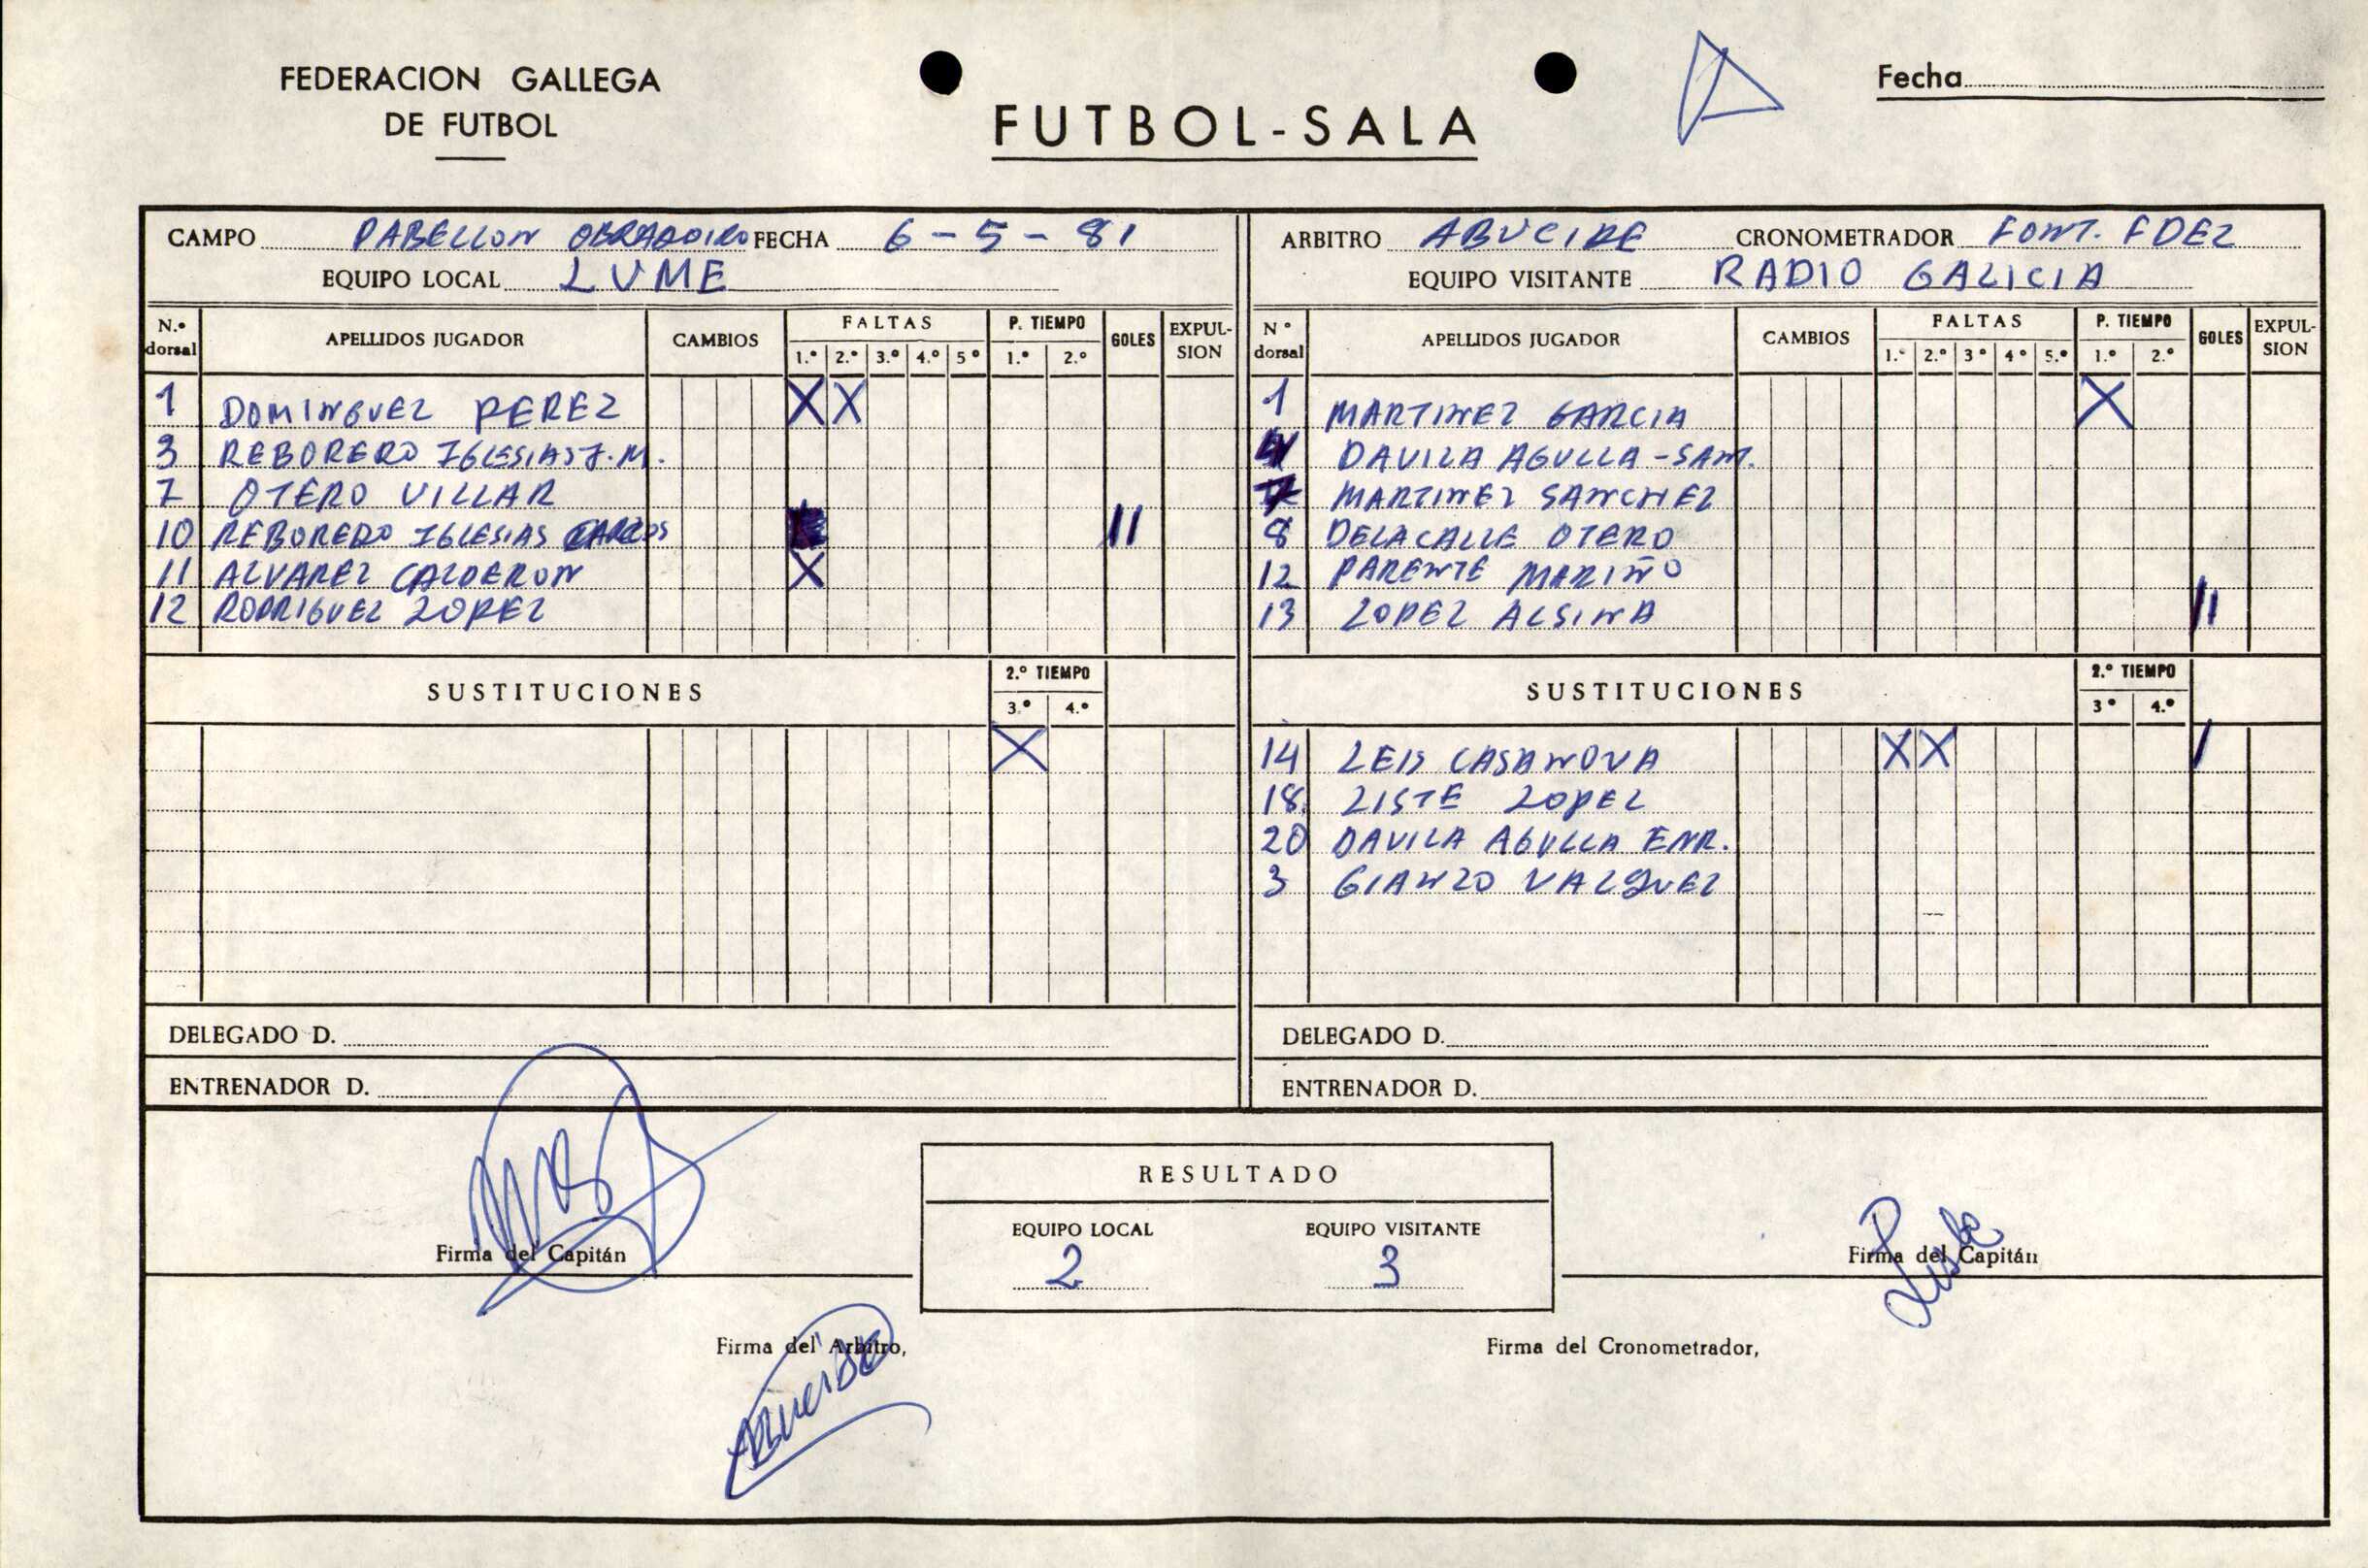 FEDERACION GALLEGA
DE FUTBOL
FUTBOL-SALA
Fecha
CAMPO PABELLON OBRADOIRO FECHA 6-5-81
EQUIPO LOCAL LUME
ARBITRO ABUCIDE CRONOMETRADOR FONT. FDEZ
EQUIPO VISITANTE RADIO GALICIA
N.º dorsal APELLIDOS JUGADOR CAMBIOS FALTAS 1.º 2.º 3.º 4.º 5º P. TIEMPO 1.º 2.º GOLES EXPULSION
1 DOMINGUEZ PEREZ X X
3 REBORERO IGLESIAS J.M.
7 OTERO VILLAR
10 REBOREDO IGLESIAS CARLOS II
11 ALVAREZ CALDERON X
12 RODRIGUEZ LOPEZ
SUSTITUCIONES 2.º TIEMPO 3.º 4.º
X
DELEGADO D.
ENTRENADOR D.
Nº dorsal APELLIDOS JUGADOR CAMBIOS FALTAS 1.º 2.º 3º 4º 5.º P. TIEMPO 1.º 2.º GOLES EXPULSION
1 MARTINEZ GARCIA X
DAVILA AGULLA-SANT.
MARTINEZ SANCHEZ
8 DELACALLE OTERO
12 PARENTE MARIÑO
13 LOPEZ ALSINA II
SUSTITUCIONES 2.º TIEMPO 3º 4.º
14 LEIS CASANOVA X X I
18 LISTE LOPEZ
20 DAVILA AGULLA ENR.
3 GIANZO VAZQUEZ
DELEGADO D.
ENTRENADOR D.
RESULTADO
EQUIPO LOCAL EQUIPO VISITANTE
2 3
Firma del Capitán
Firma del Capitán
Liste
Firma del Arbitro,
Firma del Cronometrador,